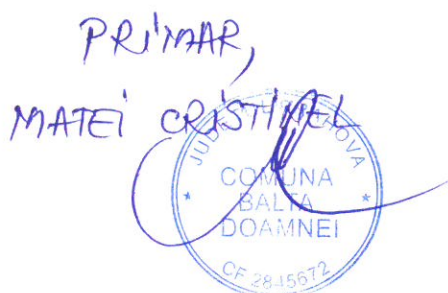 PRiMAR,
MATEi CRiSTiNEL
JUDEȚUL PRAHOVA
COMUNA
BALTA
DOAMNEI
CF 2845672